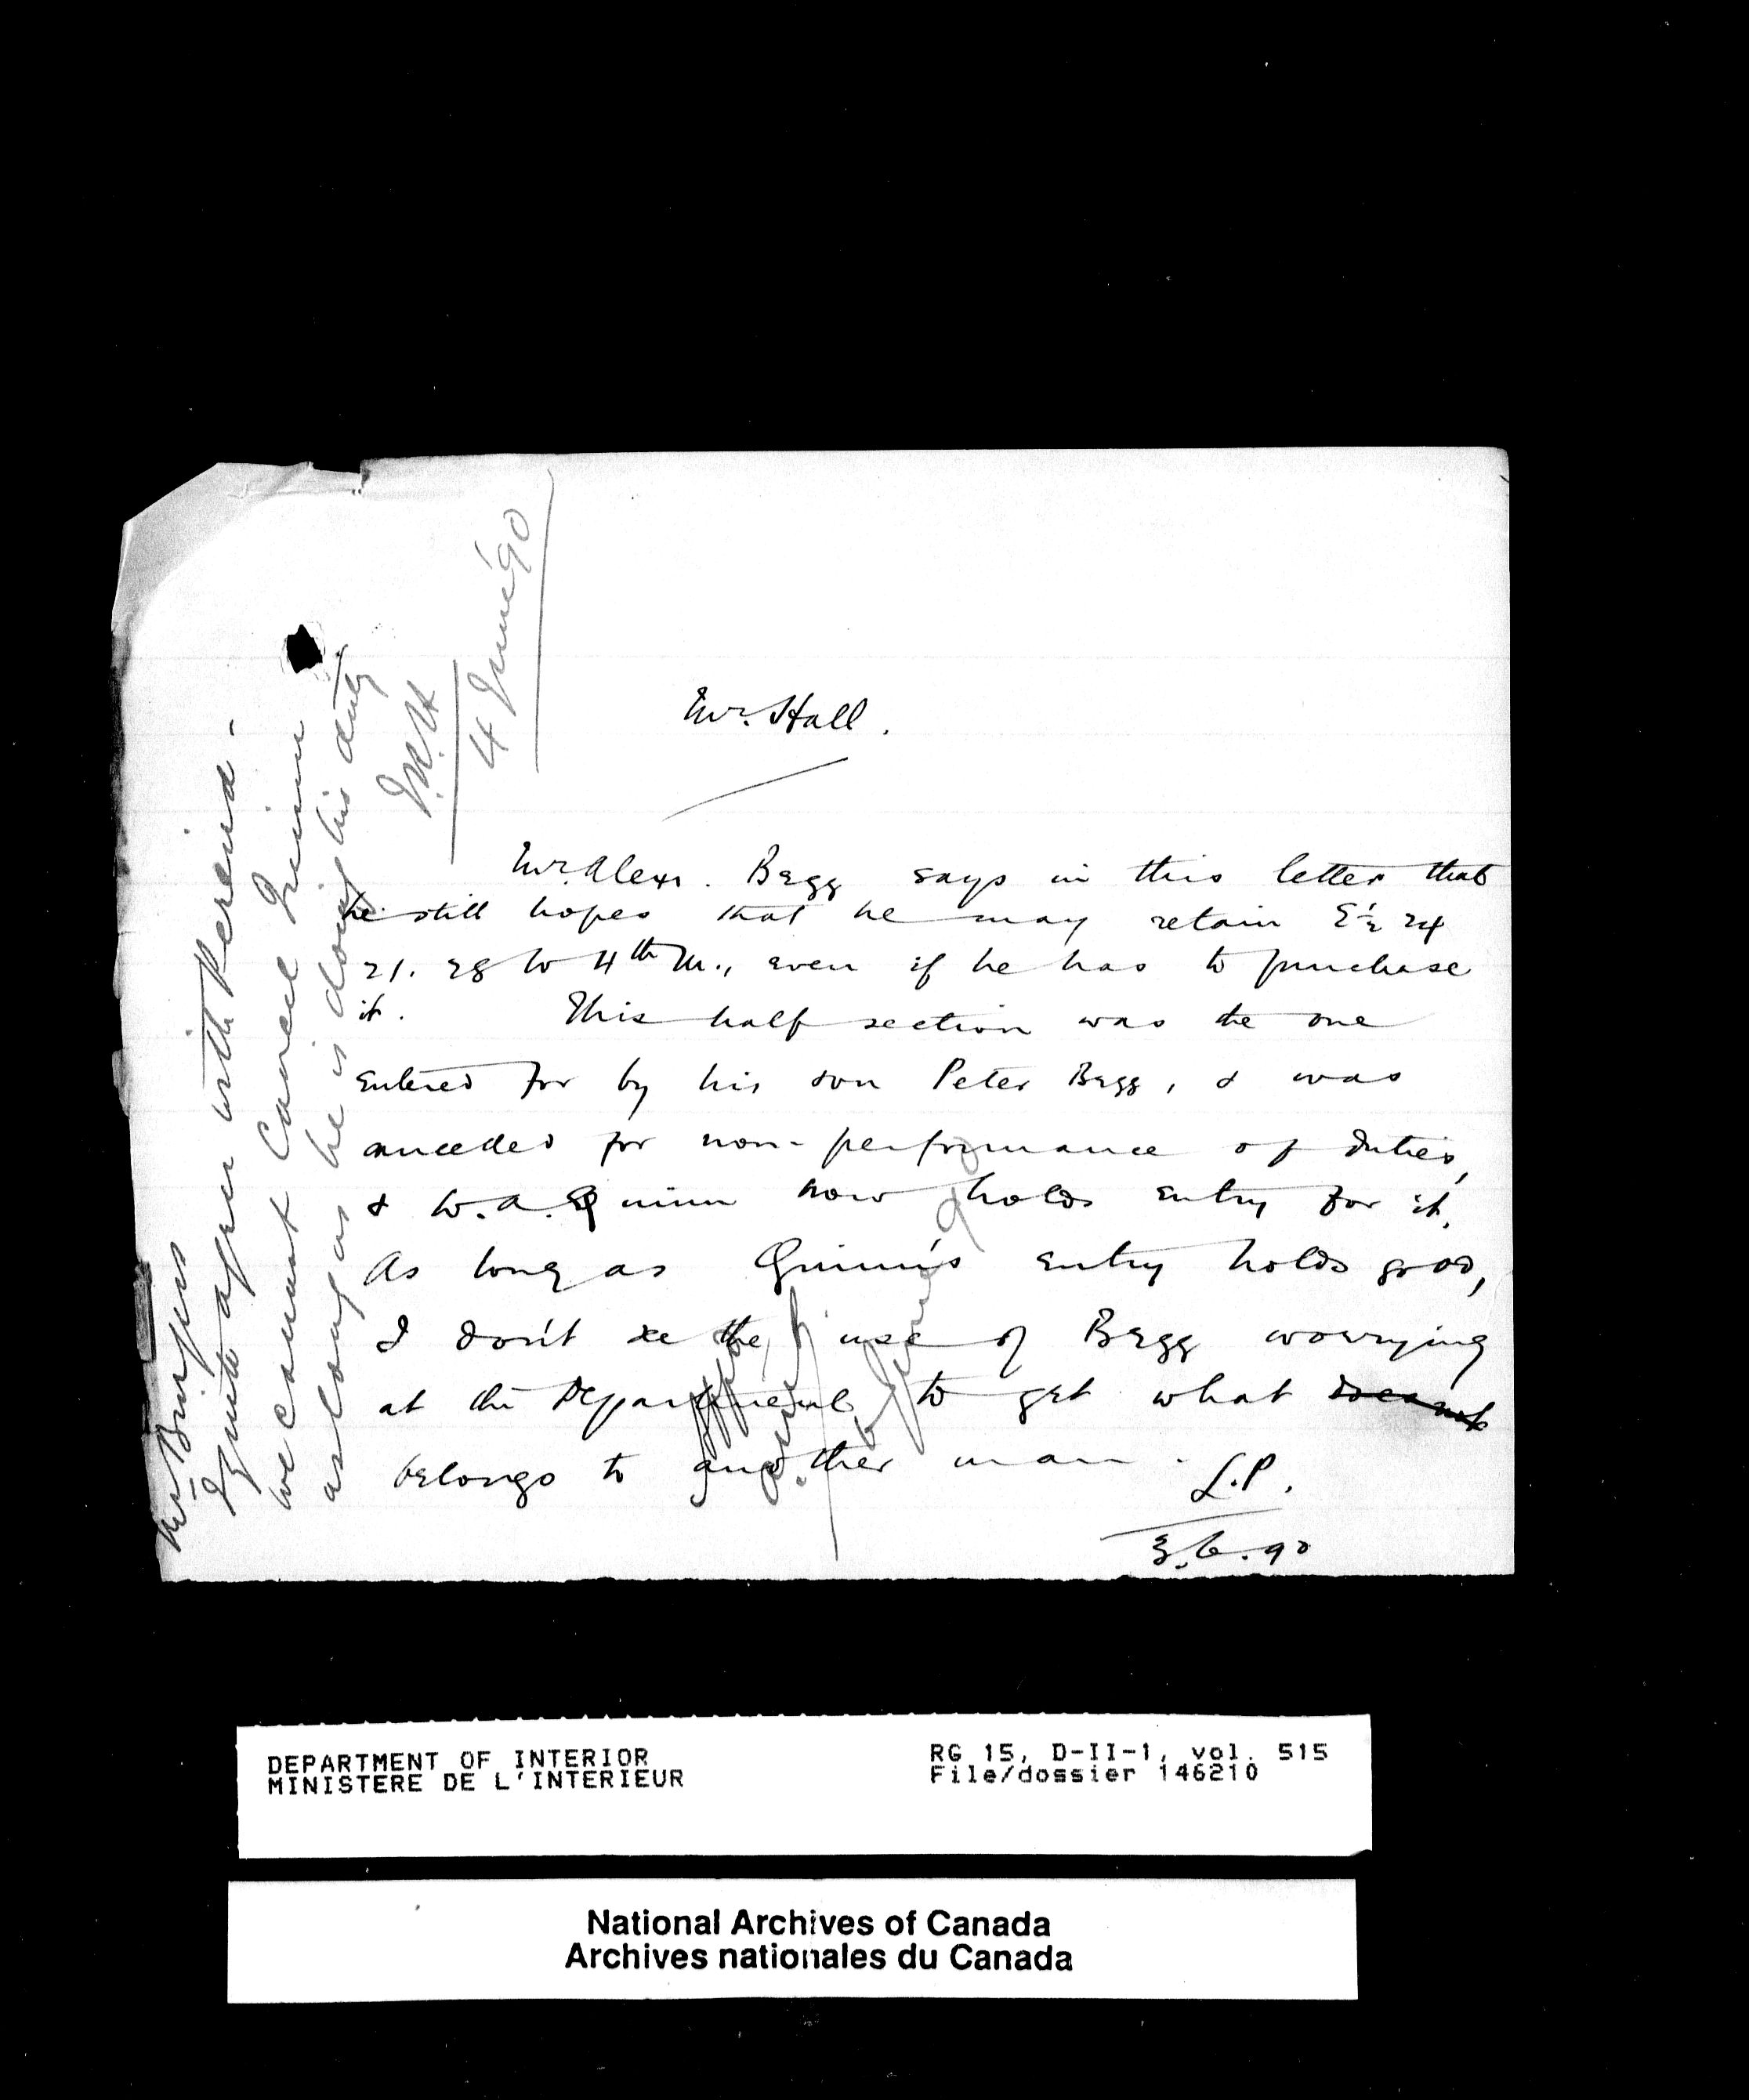 Mr. Hall.
Mr. Alexr. Begg says in this letter that
he still hopes that he may retain E½ 24
21. 28 W 4th M., even if he has to purchase
it. This half section was the one
entered for by his son Peter Begg, & was
cancelled for non-performance of duties,
& W.A. Quinn now holds entry for it.
As long as Quinn's entry holds good,
I don't see the use of Begg worrying
at the Department to get what does not
belongs to another man.
L.P.
3.6.90
Mr Burgess
I quite agree with Pereira -
we cannot Cancel Quinn
as long as he is doing his duty
J.R.H
4 June '90
6 June 90
DEPARTMENT OF INTERIOR
MINISTERE DE L'INTERIEUR
RG 15, D-II-1, vol. 515
File/dossier 146210
National Archives of Canada
Archives nationales du Canada